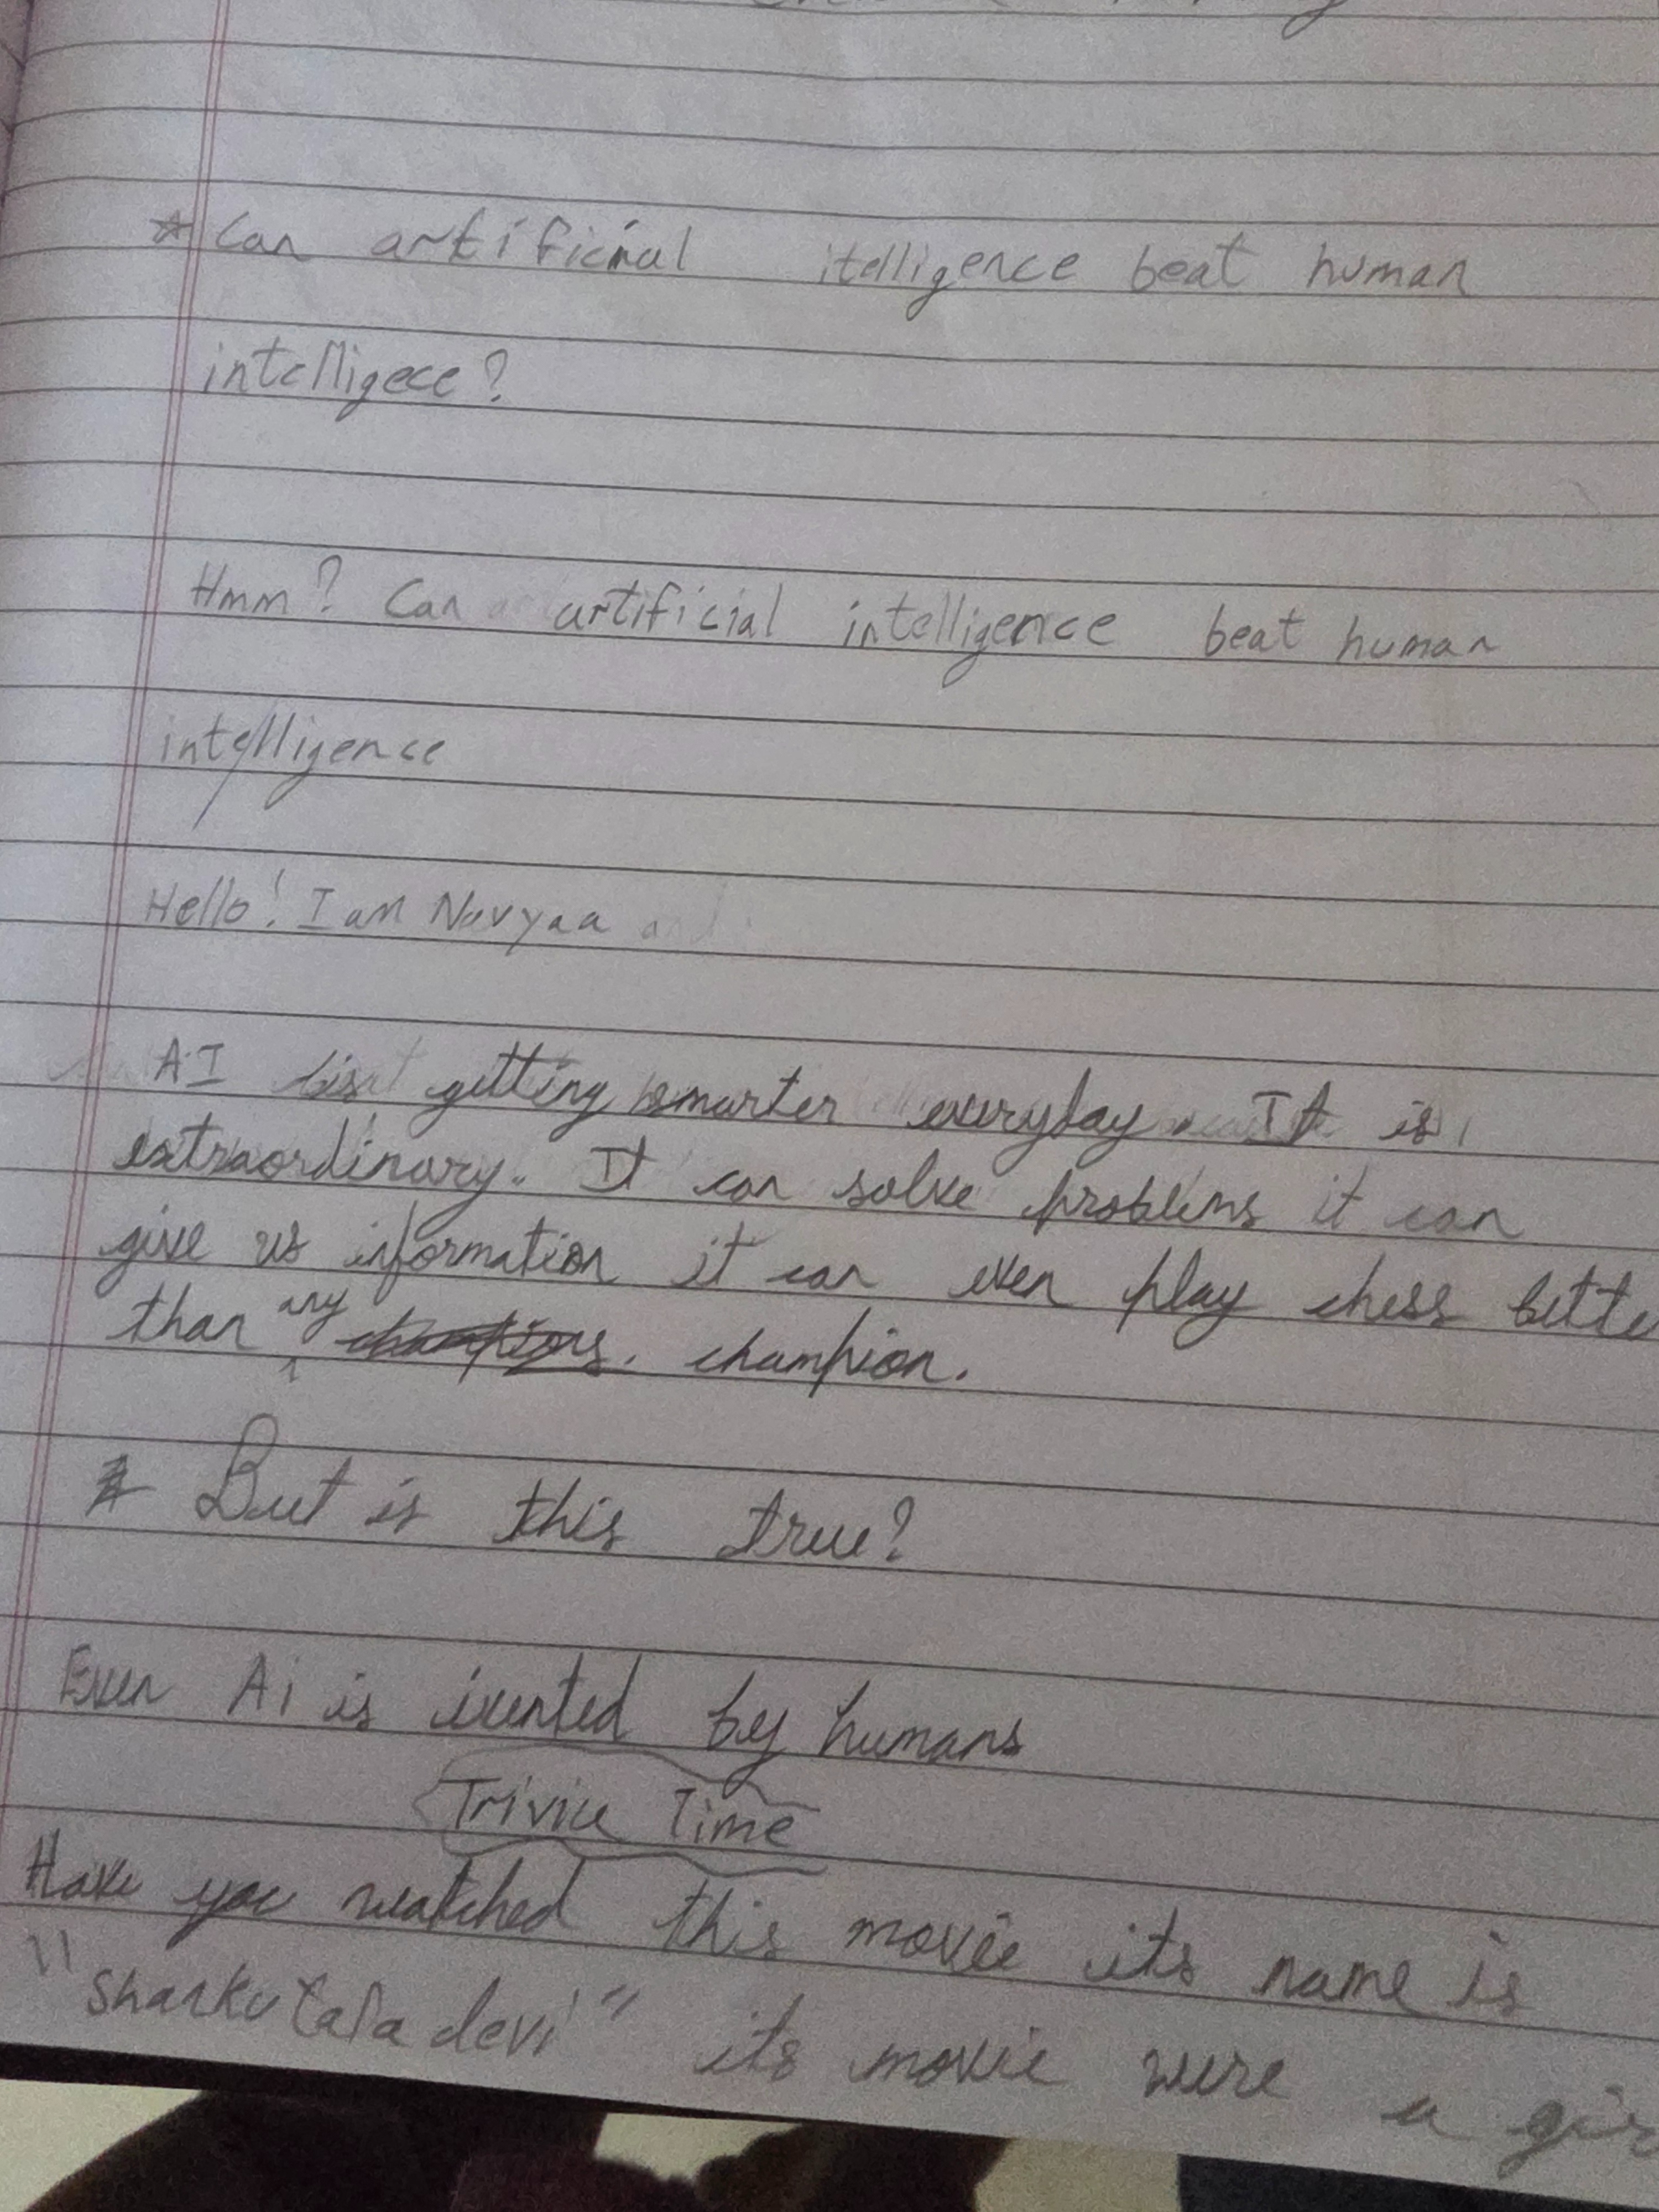 * Can artificial itelligence beat human
intelligece?
Hmm? Can artificial intelligence beat human
intelligence
Hello! I am Navyaa and
AI is getting smarter everyday. It is
extraordinary. It can solve problems it can
give us information it can even play chess bette
than any champions. champion.
* But is this true?
Even Ai is ivented by humans
Trivia Time
Have you watched this movie its name is
"Sharkutala devi" its movie were a gir